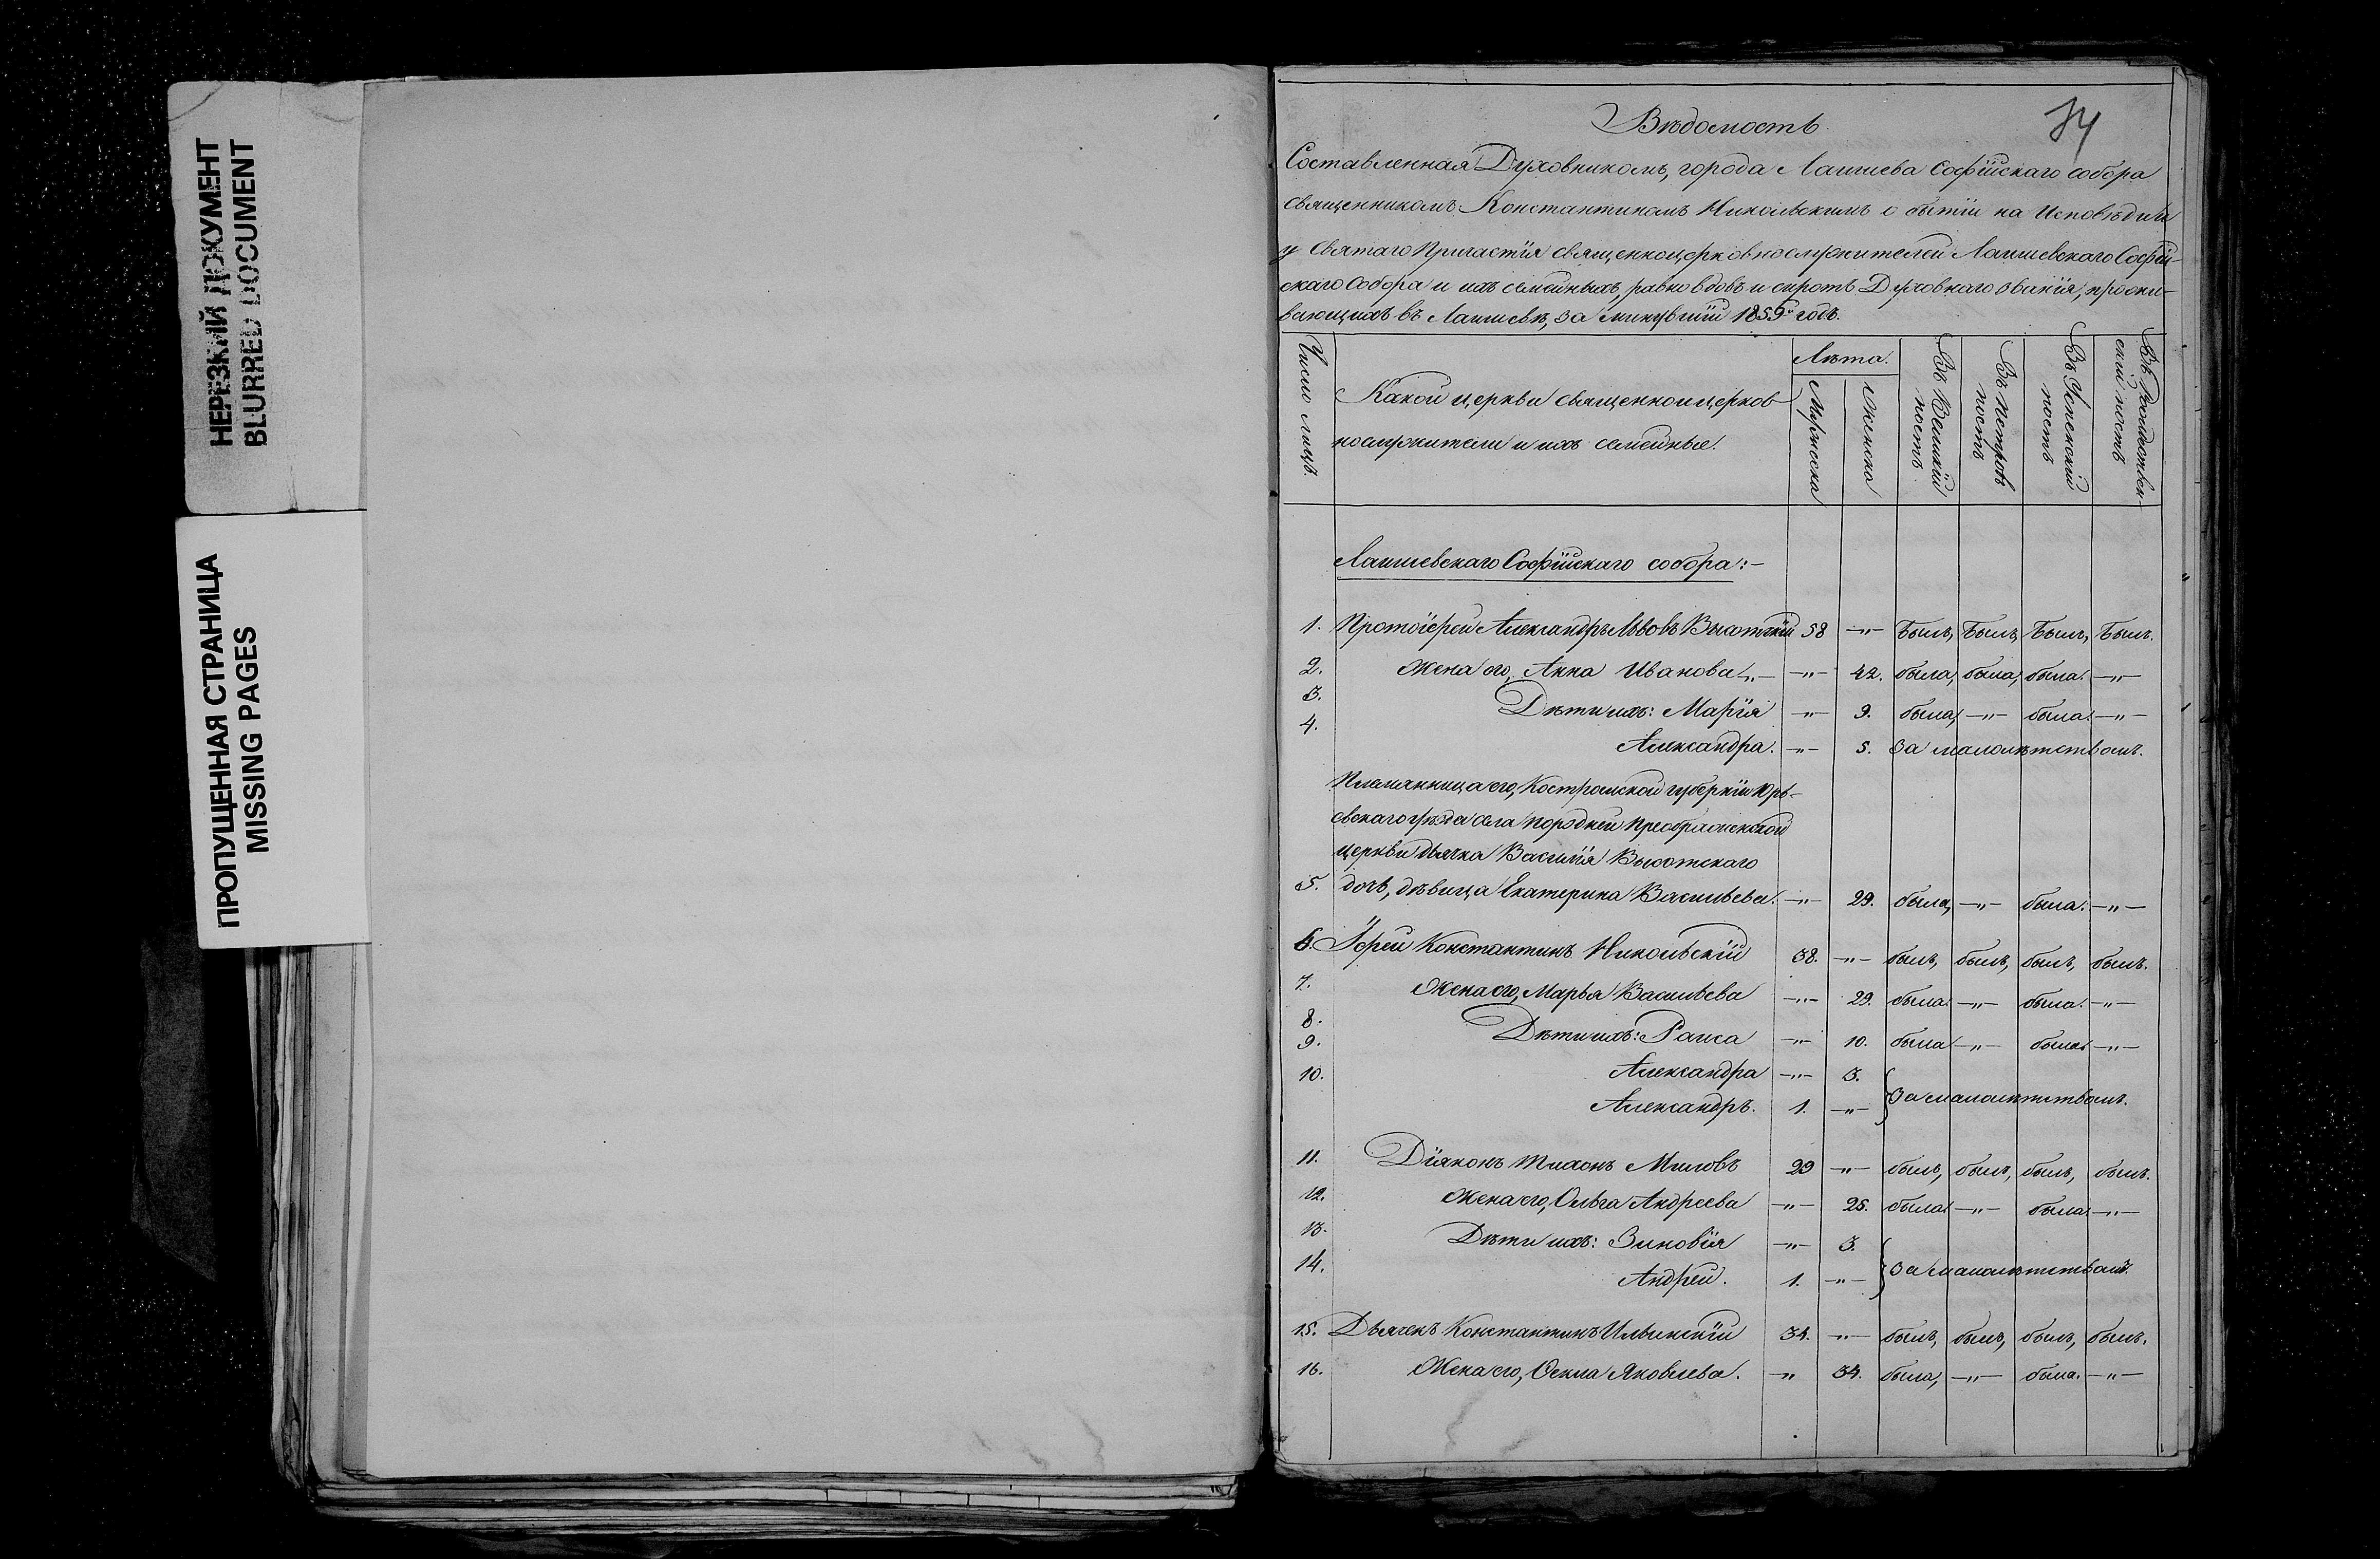 НЕРЕЗКИЙ ДОКУМЕНТ
BLURRED DOCUMENT
ПРОПУЩЕННАЯ СТРАНИЦА
MISSING PAGES
34
Вѣдомость
Составленная Духовникомъ, города Лаишева Софійскаго собора
священникомъ Константиномъ Никольскимъ о бытіи на Исповѣди и
у Святаго Причастія священноцерковнослужителей Лаишевскаго Софій-
скаго Собора и ихъ семейныхъ, равно вдовъ и сиротъ Духовнаго званія, прожи-
вающихъ въ Лаишевѣ, за минувшій 1859 годъ.
Число лицъ.
Какой церкви священноцерков
нослужители и ихъ семейные.
Лѣта.
Мужеска
Женска
Въ Великій постъ
Въ Петровъ постъ
Въ Успенскій постъ
Въ Рождествен-скій постъ
Лаишевскаго Софійскаго собора:-
1. Протоіерей Александръ Львовъ Высотскій 58 -"- Былъ, Былъ, Былъ, Былъ.
2. Жена его, Анна Иванова -"- -"- 42. была, была, была. -"-
3. Дѣти ихъ: Марія -"- 9. была, -"- была. -"-
4. Александра. -"- 5. За малолѣтствомъ.
Племянница его, Костромской губерніи Юрь-
евскаго уѣзда села Порздней Преображенской
церкви дьячка Василія Высотскаго
5. дочь, дѣвица Екатерина Васильева. -"- 29. была, -"- была. -"-
6. Іерей Константинъ Никольскій 38. -"- былъ, былъ, былъ, былъ.
7. Жена его, Марья Васильева -"- 29. была. -"- была. -"-
8. Дѣти ихъ: Раиса -"- 10. была -"- была -"-
9. Александра -"- 3.
10. Александръ. 1. -"- За малолѣтствомъ.
11. Діаконъ Тихонъ Миловъ 29 -"- былъ, былъ, былъ, былъ.
12. Жена его, Ольга Андреева -"- 25. была. -"- была. -"-
13. Дѣти ихъ: Зиновія -"- 3.
14. Андрей. 1. -"- За малолѣтствомъ.
15. Дьячекъ Константинъ Ильинскій 34. -"- былъ, былъ, былъ, былъ.
16. Жена его, Ѳекла Яковлева. -"- 34. была, -"- была. -"-